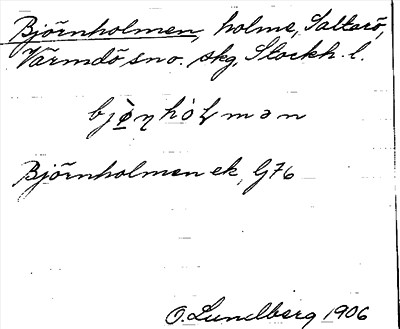 Björnholmen, holme, Saltarö,
Värmdö sno. skg, Stockh. l.
Björnholmen ek, G76
O. Lundberg 1906